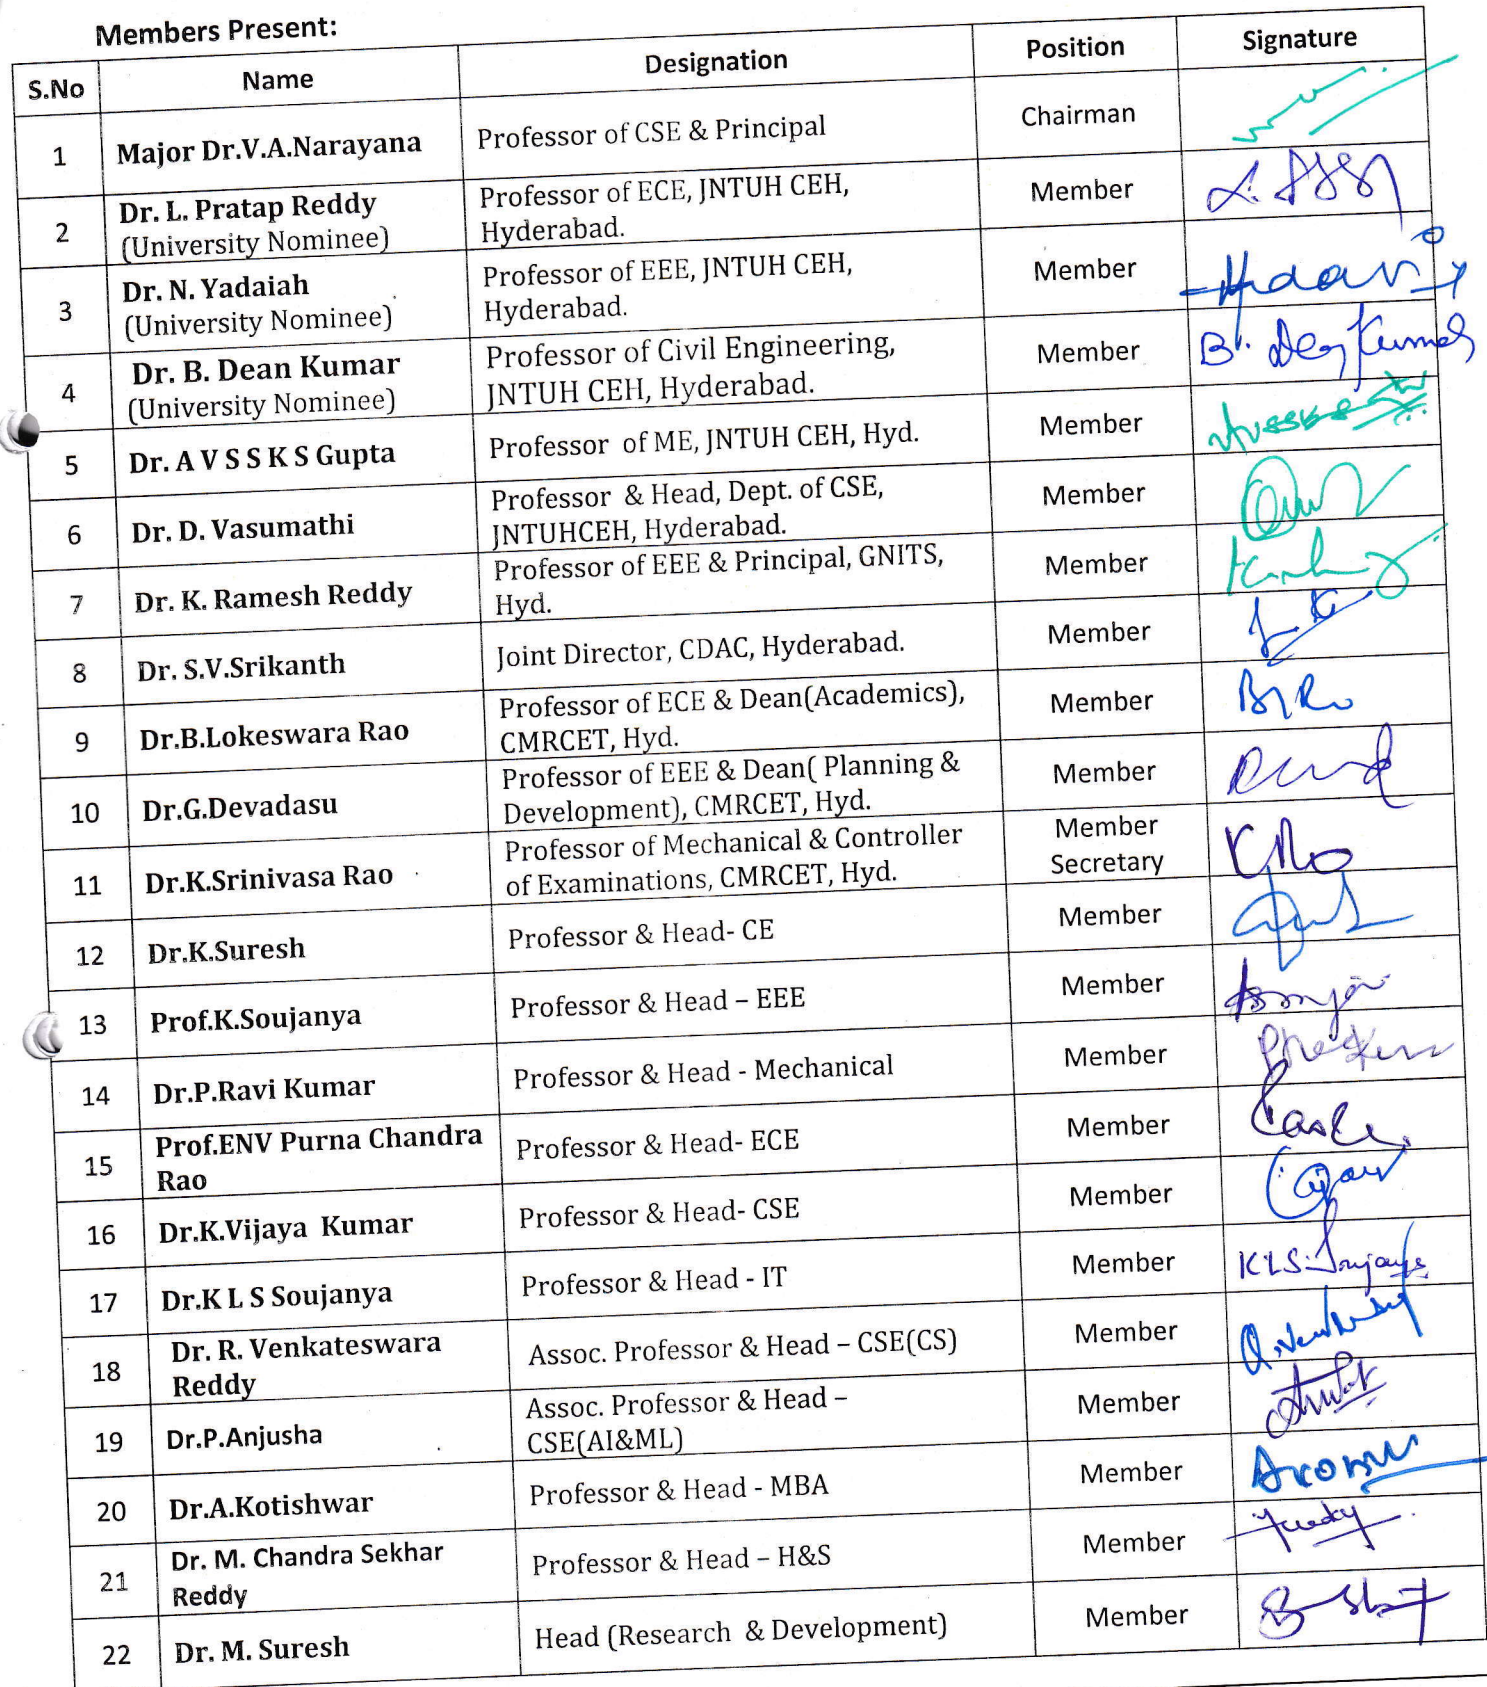 Members Present:
S.No Name Designation Position Signature
1 Major Dr.V.A.Narayana Professor of CSE & Principal Chairman
2 Dr. L. Pratap Reddy Professor of ECE, JNTUH CEH, Member
(University Nominee) Hyderabad.
3 Dr. N. Yadaiah Professor of EEE, JNTUH CEH, Member
(University Nominee) Hyderabad.
4 Dr. B. Dean Kumar Professor of Civil Engineering, Member
(University Nominee) JNTUH CEH, Hyderabad.
5 Dr. A V S S K S Gupta Professor of ME, JNTUH CEH, Hyd. Member
6 Dr. D. Vasumathi Professor & Head, Dept. of CSE, Member
JNTUHCEH, Hyderabad.
7 Dr. K. Ramesh Reddy Professor of EEE & Principal, GNITS, Member
Hyd.
8 Dr. S.V.Srikanth Joint Director, CDAC, Hyderabad. Member
9 Dr.B.Lokeswara Rao Professor of ECE & Dean(Academics), Member
CMRCET, Hyd.
10 Dr.G.Devadasu Professor of EEE & Dean( Planning & Member
Development), CMRCET, Hyd.
11 Dr.K.Srinivasa Rao Professor of Mechanical & Controller Member
of Examinations, CMRCET, Hyd. Secretary
12 Dr.K.Suresh Professor & Head- CE Member
13 Prof.K.Soujanya Professor & Head – EEE Member
14 Dr.P.Ravi Kumar Professor & Head - Mechanical Member
15 Prof.ENV Purna Chandra Professor & Head- ECE Member
Rao
16 Dr.K.Vijaya Kumar Professor & Head- CSE Member
17 Dr.K L S Soujanya Professor & Head - IT Member KLS Soujanya
18 Dr. R. Venkateswara Assoc. Professor & Head – CSE(CS) Member
Reddy
19 Dr.P.Anjusha Assoc. Professor & Head – Member
CSE(AI&ML)
20 Dr.A.Kotishwar Professor & Head - MBA Member
21 Dr. M. Chandra Sekhar Professor & Head – H&S Member
Reddy
22 Dr. M. Suresh Head (Research & Development) Member